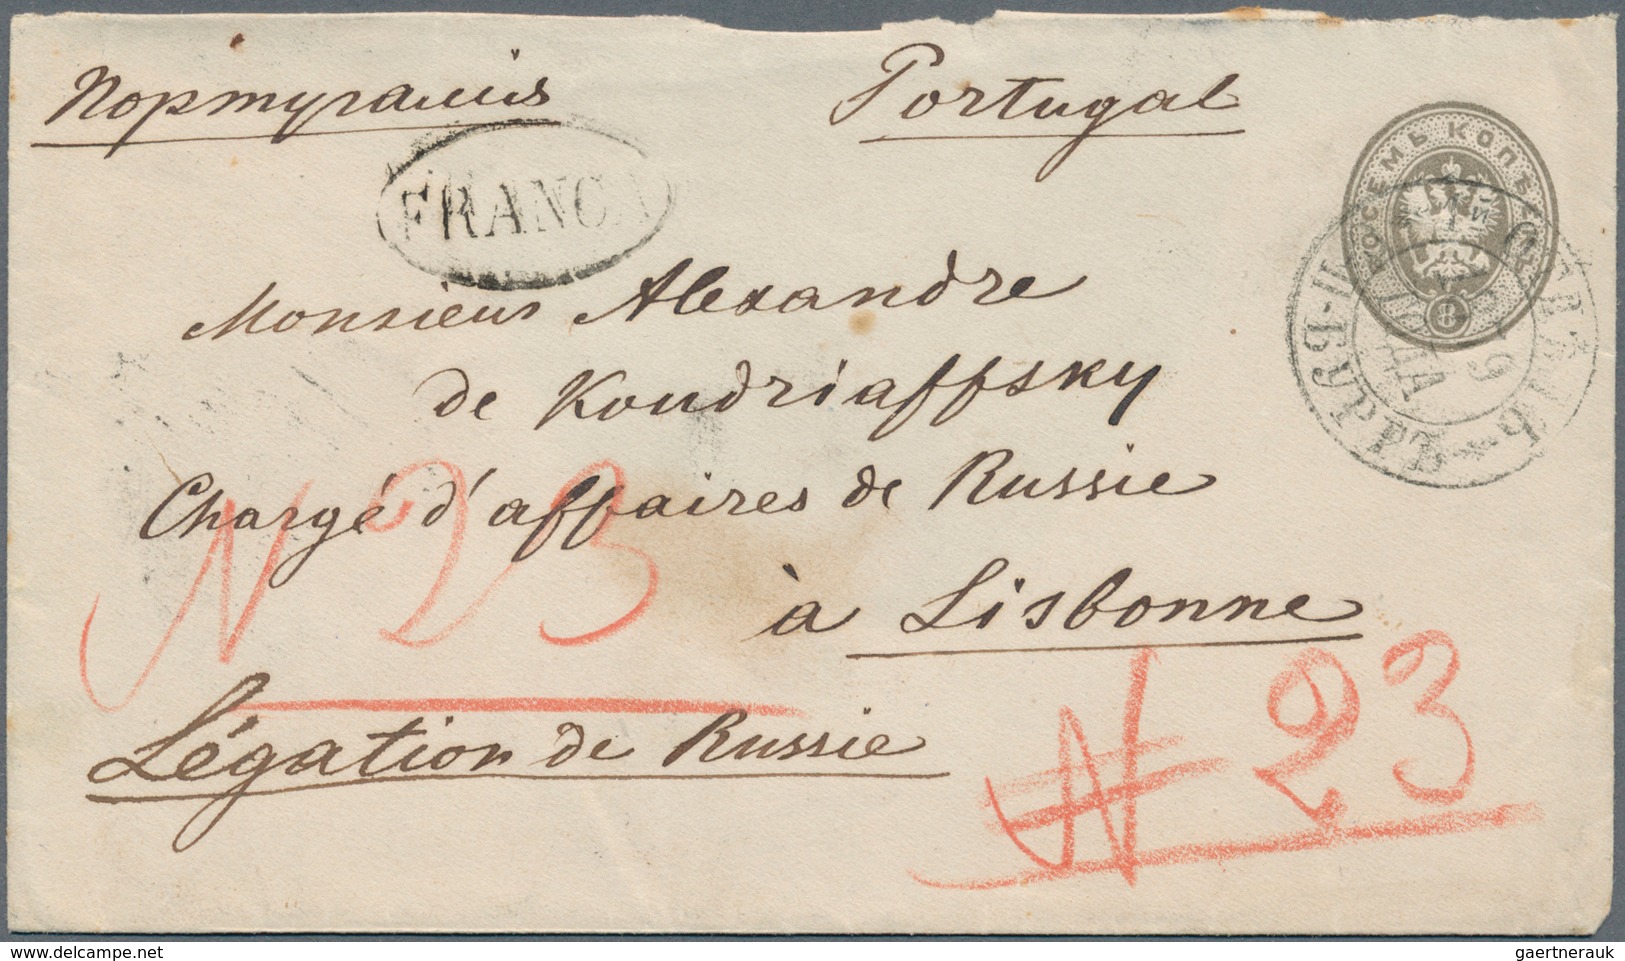 Португалія Portugal
ВОСЕМЬ КОПѢЕКЪ
8
FRANCA
Monsieur Alexandre
de Koudriaffsky
Chargé d'affaires de Russie
à Lisbonne
Légation de Russie
N 23
N 23
delcampe.net
gaertnerauk